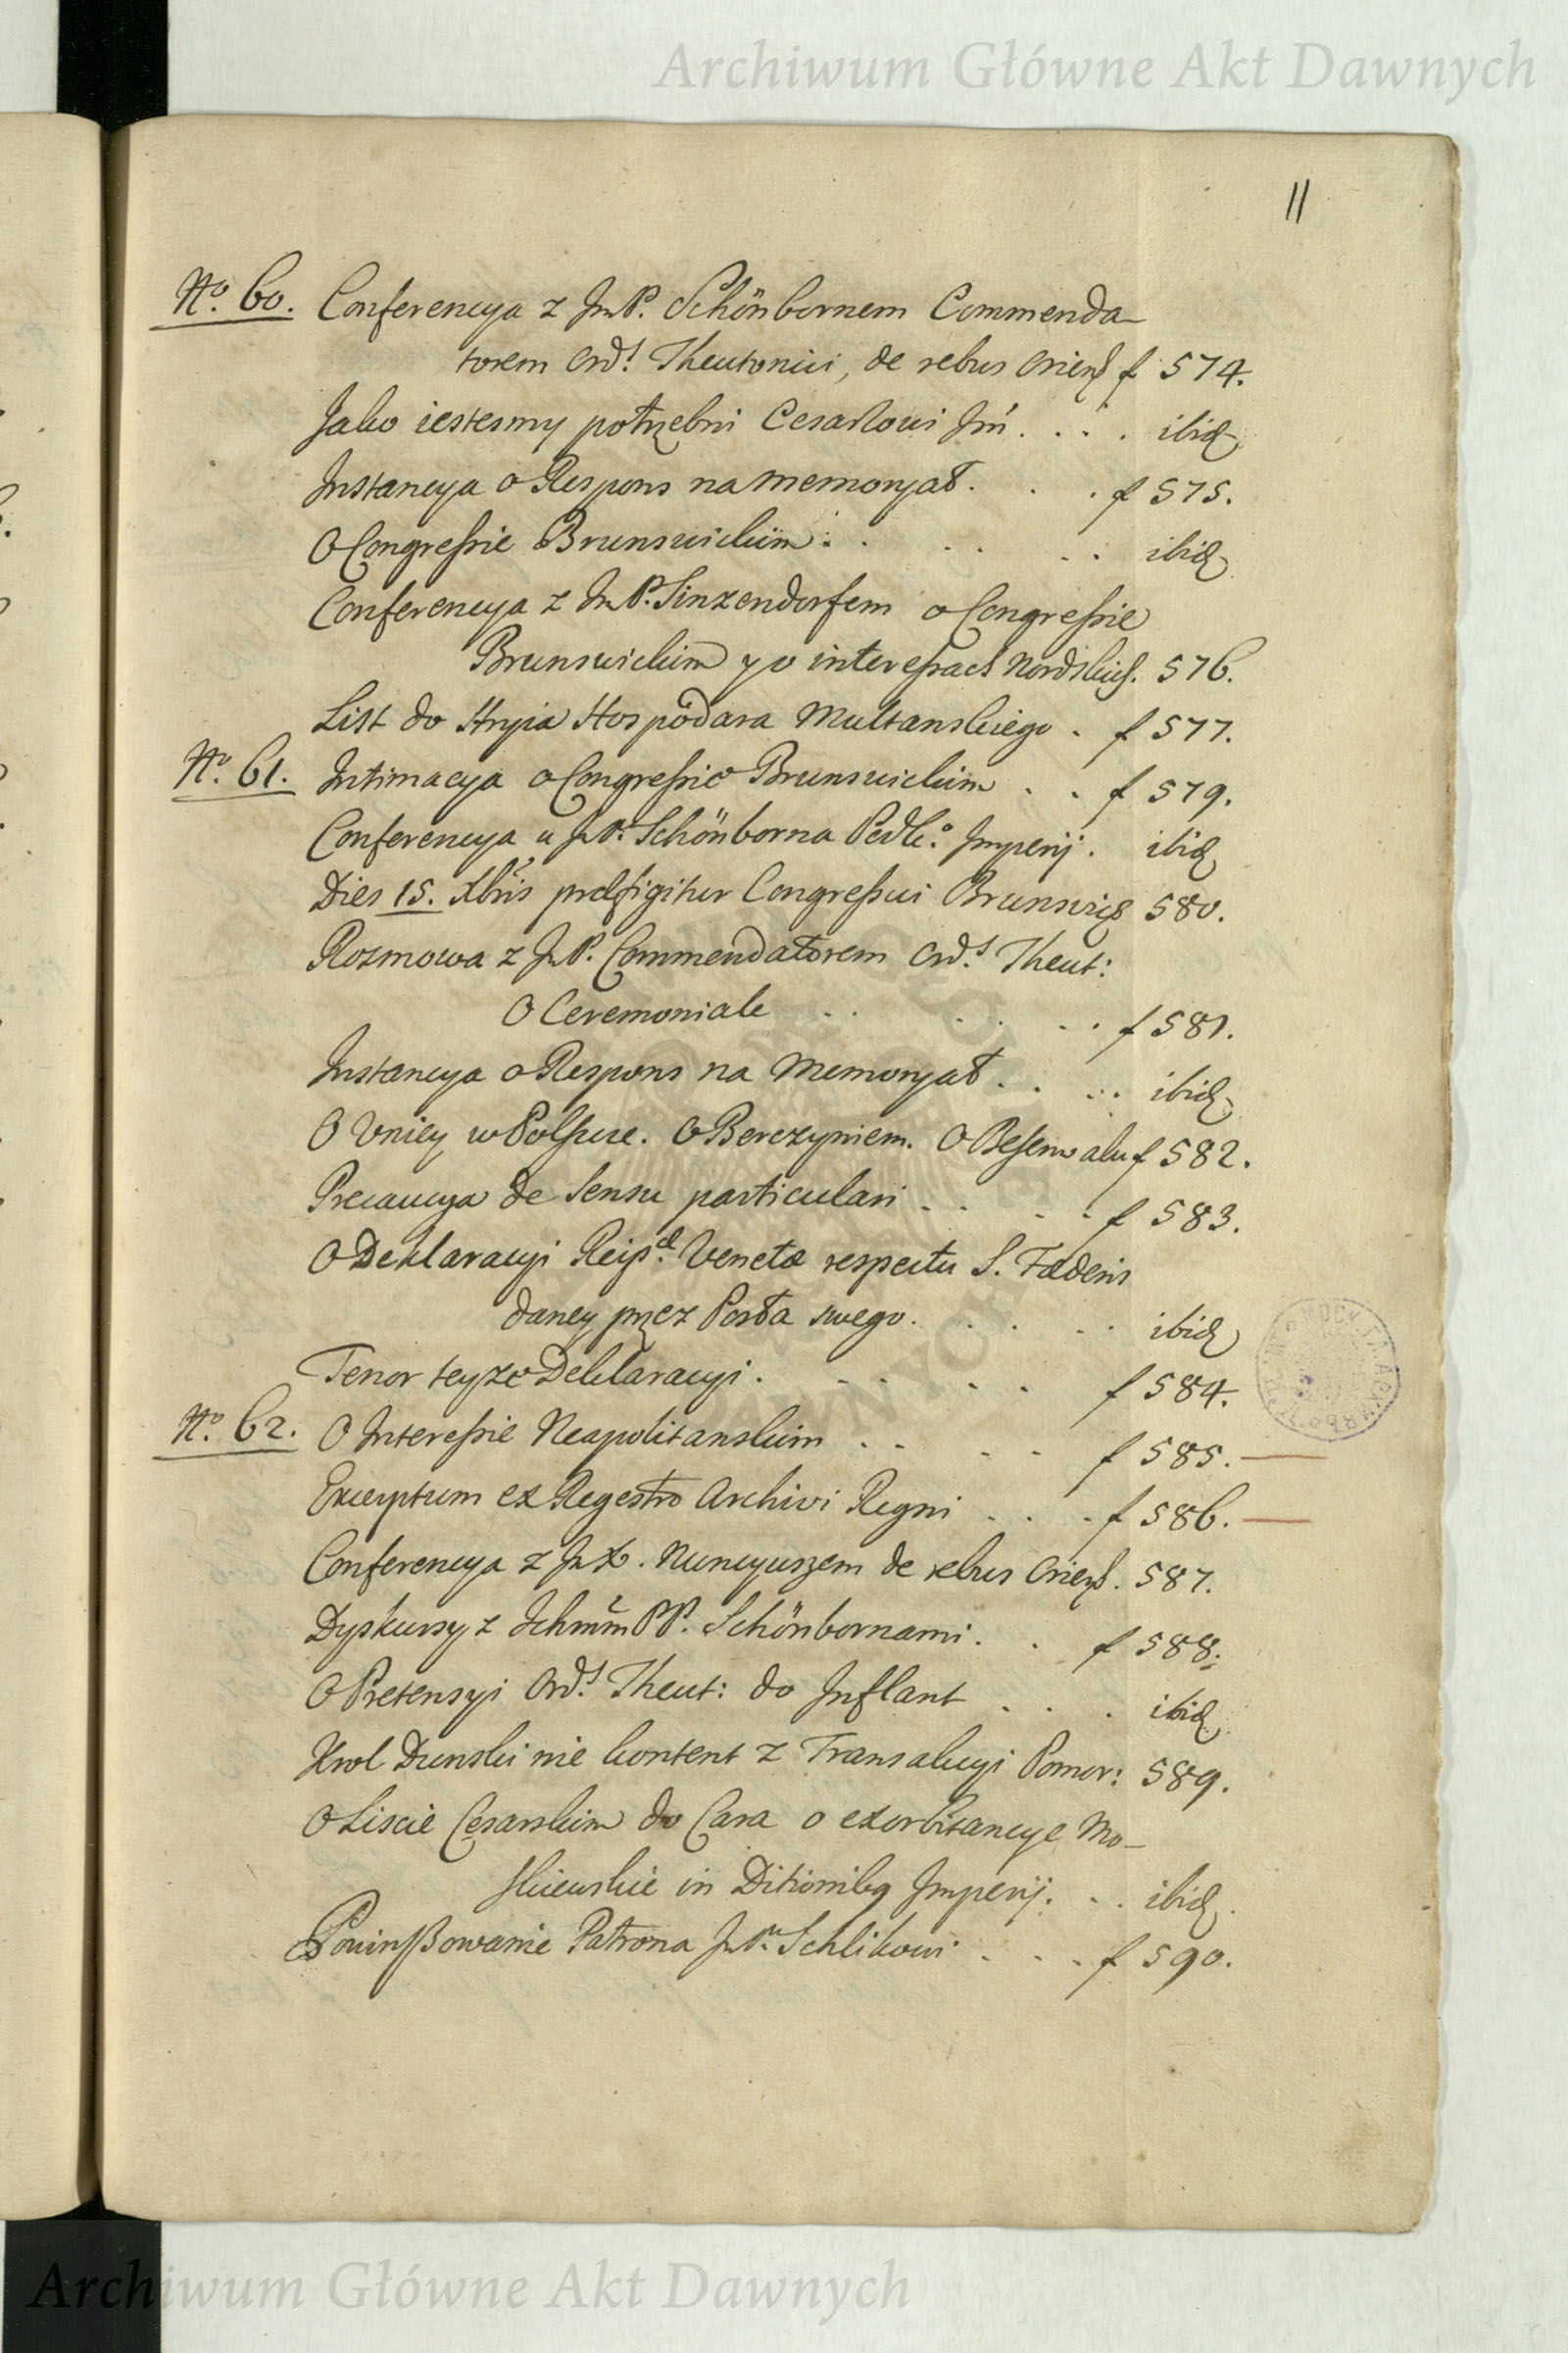 Archiwum Główne Akt Dawnych
11
No. 60. Conferencya z JmP. Schönbornem Commenda-
torem Ords Theutonici, de rebus Orient f 574.
Jako iestesmy potrzebni Cesarzowi Jm̃. . . . ibid
Instancya o Respons na memoryał. . . f 575.
O Congressie Brunswickim . . . . ibid
Conferencya z JmP. Sinzendorfem o Congressie
Brunswickim y o interessach Nordskich. 576.
List do Hospodara Multanskiego . f 577.
No. 61. Intimacya o Congressie Brunswickim . . f 579.
Conferencya u JmP. Schönborna Imperij. ibid
Dies 15. Xbris praefigitur Congressui Brunswic 580.
Rozmowa z JmP. Commendatorem Ords Theut:
O Ceremoniale . . . . . f 581.
Instancya o Respons na Memoryał . . . . ibid
O Vniey w Polszcze. O Berczyniem. O Besenwalu f 582.
Precaucya de Sensu particulari . . . . f 583.
O Deklaracyi Reipcae Venetae respectu S. Faederis
daney przez Posła swego. . . . . ibid
Tenor teyze Deklaracyi. . . . . f 584.
No. 62. O Interessie Neapolitanskim . . . . f 585.
Excerptum ex Regestro Archivi Regni . . . f 586.
Conferencya z JmX. Nuncyuszem de rebus Orient. 587.
Dyskursy z Ichmm PP. Schönbornami. . f 588.
O Pretensyi Ords Theut: do Inflant . . . ibid
Krol Dunski nie kontent z Transakcyi Pomor: 589.
O Liscie Cesarskim do Cara o exorbitancye Mo-
skiewskie in Ditionibq Imperij. . . ibid.
Powinszowanie Patrona JmP. Schlikowi . . . f 590.
Archiwum Główne Akt Dawnych